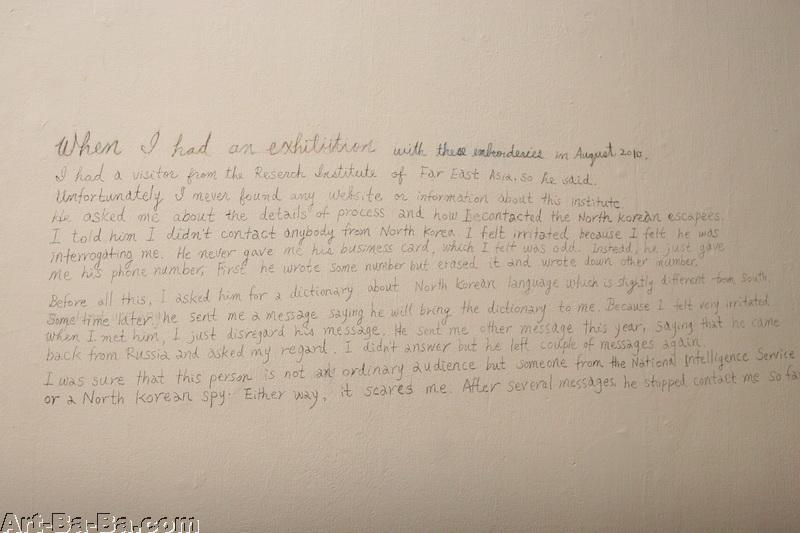 When I had an exhibition with these embroideries in August 2010.
I had a visitor from the Reserch Institute of Far East Asia. so he said.
Unfortunately I never found any website or information about this institute
He asked me about the details of process and how I contacted the North Korean escapees.
I told him I didn't contact anybody from North Korea. I felt irritated because I felt he was
interrogating me. He never gave me his business card, which I felt was odd. Instead, he just gave
me his phone number, First he wrote some number but erased it and wrote down other number.
Before all this, I asked him for a dictionary about North Korean language which is slightly different from South.
Some time later, he sent me a message saying he will bring the dictionary to me. Because I felt very irritated
when I met him, I just disregard his message. He sent me other message this year, saying that he came
back from Russia and asked my regard. I didn't answer but he left couple of messages again.
I was sure that this person is not an ordinary audience but someone from the National Intelligence Service
or a North Korean spy. Either way, it scares me. After several messages, he stopped contact me so far
Art-Ba-Ba.com